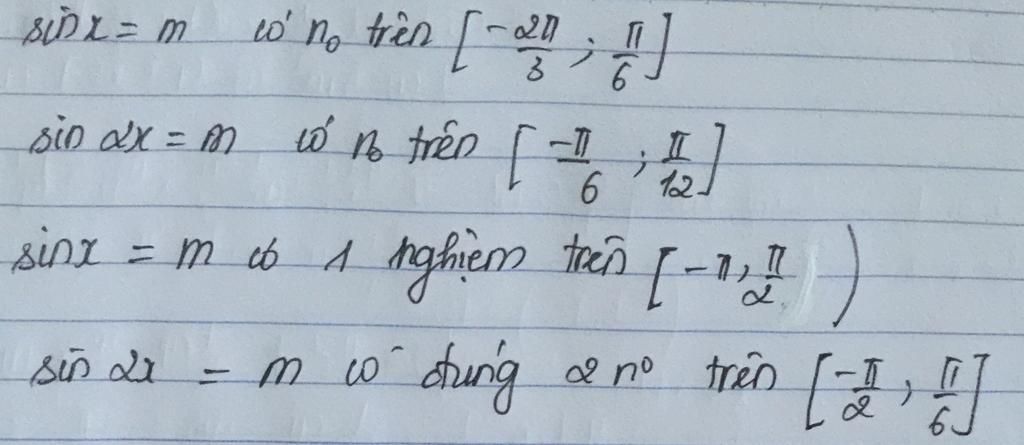 sin x = m có n₀ trên [-2π/3 ; π/6]
sin 2x = m có n₀ trên [-π/6 ; π/12]
sin x = m có 1 nghiệm trên [-π, π/2)
sin 2x = m có đúng 2 n⁰ trên [-π/2, π/6]